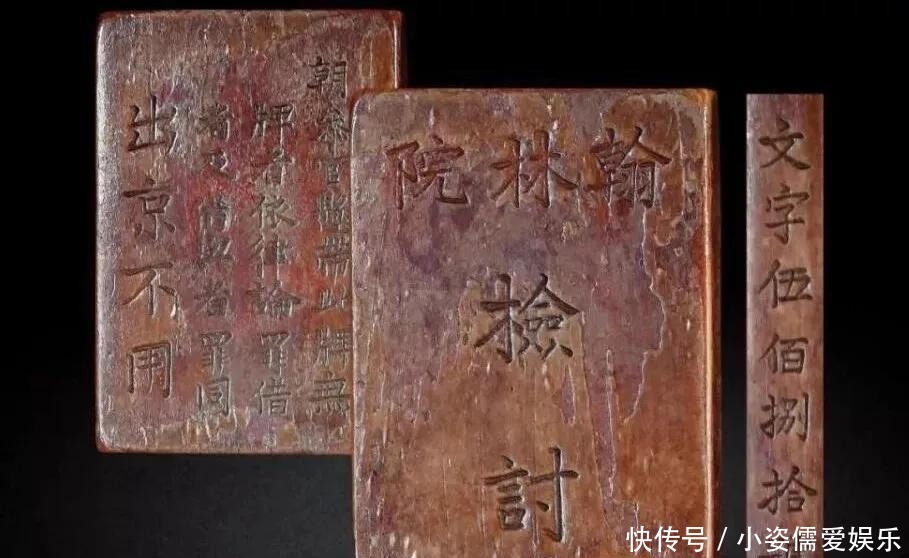 朝參官懸帶此牌無
牌者依律論罪借
者及借與者罪同
出京不用
翰林院
檢討
文字伍佰捌拾
快传号 / 小姿儒爱娱乐